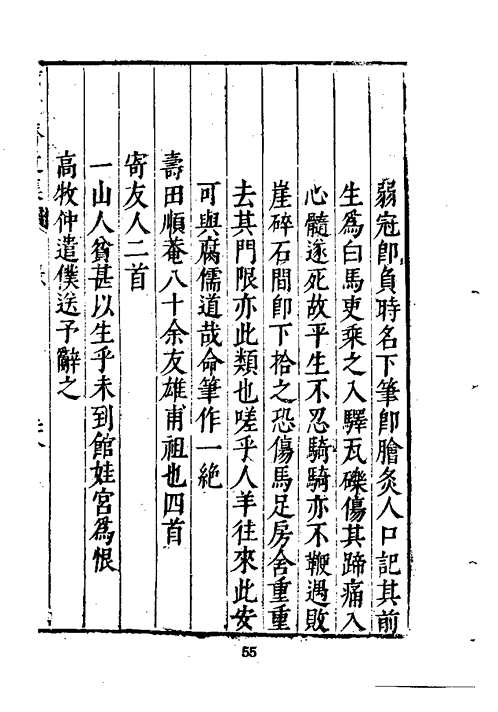 弱冠即負時名下筆即膾炙人口記其前
生為白馬吏乘之入驛瓦礫傷其蹄痛入
心髓遂死故平生不忍騎騎亦不鞭遇敗
崖碎石間即下拾之恐傷馬足房舍重重
去其門限亦此類也嗟乎人羊往來此安
可與腐儒道哉命筆作一絶
壽田順菴八十余友雄甫祖也四首
寄友人二首
一山人貧甚以生乎未到館娃宮爲恨
高牧仲遣僕送予辭之
55